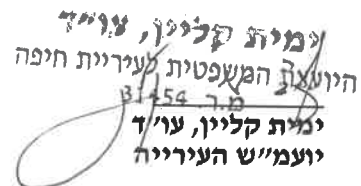 ימית קליין, עו״ד
היועצת המשפטית לעיריית חיפה
מ.ר. 31454
ימית קליין, עו״ד
יועמ״ש העירייה